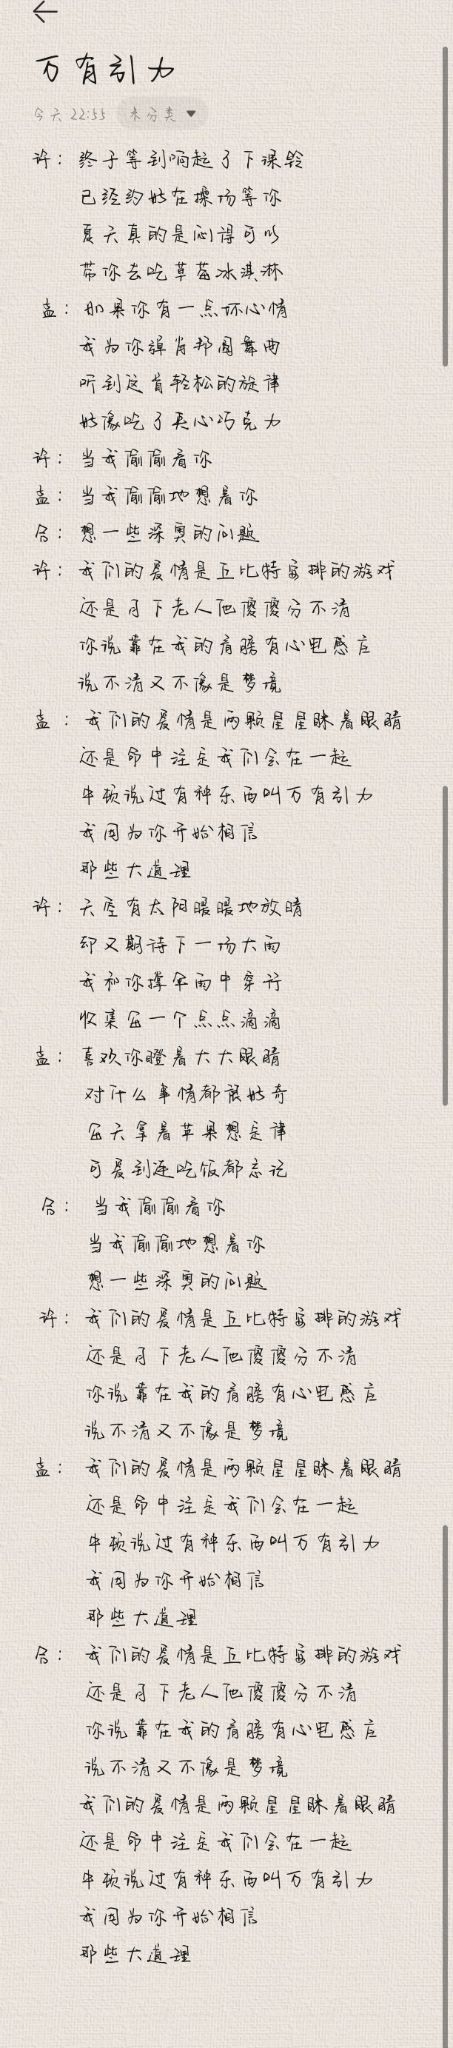 万有引力
今天 22:55 未分类
许：终于等到响起了下课铃
已经约好在操场等你
夏天真的是闷得可以
带你去吃草莓冰淇淋
孟：如果你有一点坏心情
我为你弹肖邦圆舞曲
听到这首轻松的旋律
好像吃了夹心巧克力
许：当我偷偷看你
孟：当我偷偷地想着你
合：想一些深奥的问题
许：我们的爱情是丘比特安排的游戏
还是月下老人他傻傻分不清
你说靠在我的肩膀有心电感应
说不清又不像是梦境
孟：我们的爱情是两颗星星眯着眼睛
还是命中注定我们会在一起
牛顿说过有种东西叫万有引力
我因为你开始相信
那些大道理
许：天空有太阳暖暖地放晴
却又期待下一场大雨
我和你撑伞雨中穿行
收集每一个点点滴滴
孟：喜欢你瞪着大大眼睛
对什么事情都很好奇
每天拿着苹果想定律
可爱到连吃饭都忘记
合：当我偷偷看你
当我偷偷地想着你
想一些深奥的问题
许：我们的爱情是丘比特安排的游戏
还是月下老人他傻傻分不清
你说靠在我的肩膀有心电感应
说不清又不像是梦境
孟：我们的爱情是两颗星星眯着眼睛
还是命中注定我们会在一起
牛顿说过有种东西叫万有引力
我因为你开始相信
那些大道理
合：我们的爱情是丘比特安排的游戏
还是月下老人他傻傻分不清
你说靠在我的肩膀有心电感应
说不清又不像是梦境
我们的爱情是两颗星星眯着眼睛
还是命中注定我们会在一起
牛顿说过有种东西叫万有引力
我因为你开始相信
那些大道理